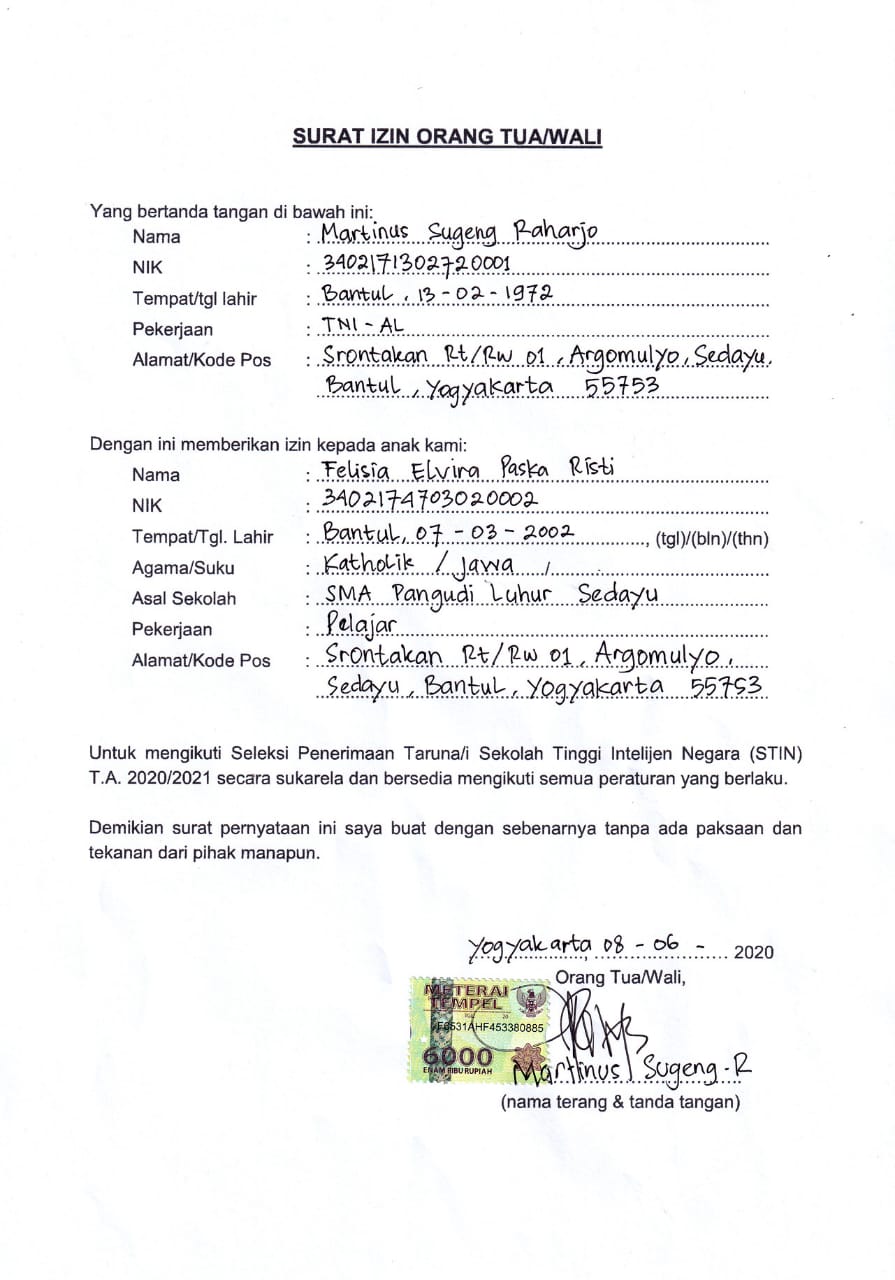 SURAT IZIN ORANG TUA/WALI
Yang bertanda tangan di bawah ini:
Nama : Martinus Sugeng Raharjo
NIK : 3402171302720001
Tempat/tgl lahir : Bantul, 13-02-1972
Pekerjaan : TNI-AL
Alamat/Kode Pos : Srontakan Rt/Rw 01, Argomulyo, Sedayu,
Bantul, Yogyakarta 55753
Dengan ini memberikan izin kepada anak kami:
Nama : Felisia Elvira Paska Risti
NIK : 3402174703020002
Tempat/Tgl. Lahir : Bantul, 07-03-2002, (tgl)/(bln)/(thn)
Agama/Suku : Katholik / Jawa /
Asal Sekolah : SMA Pangudi Luhur Sedayu
Pekerjaan : Pelajar
Alamat/Kode Pos : Srontakan Rt/Rw 01, Argomulyo,
Sedayu, Bantul, Yogyakarta 55753
Untuk mengikuti Seleksi Penerimaan Taruna/i Sekolah Tinggi Intelijen Negara (STIN)
T.A. 2020/2021 secara sukarela dan bersedia mengikuti semua peraturan yang berlaku.
Demikian surat pernyataan ini saya buat dengan sebenarnya tanpa ada paksaan dan
tekanan dari pihak manapun.
Yogyakarta, 08-06- 2020
Orang Tua/Wali,
METERAI
TEMPEL
6000
ENAM RIBU RUPIAH
Martinus Sugeng.R
(nama terang & tanda tangan)